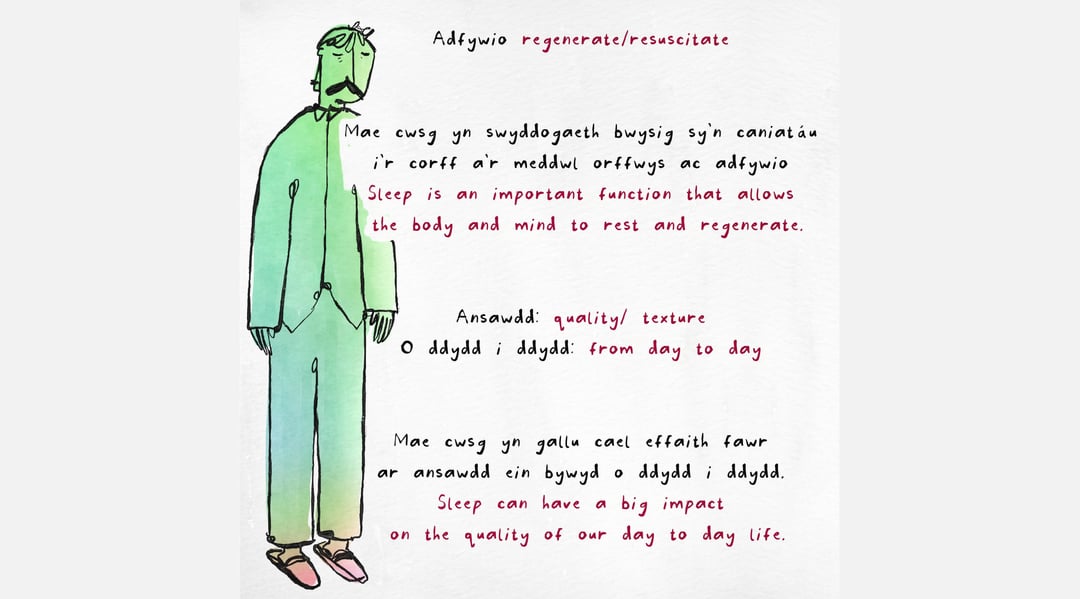 Adfywio regenerate/resuscitate
Mae cwsg yn swyddogaeth bwysig sy'n caniatáu
i'r corff a'r meddwl orffwys ac adfywio
Sleep is an important function that allows
the body and mind to rest and regenerate.
Ansawdd: quality/ texture
O ddydd i ddydd: from day to day
Mae cwsg yn gallu cael effaith fawr
ar ansawdd ein bywyd o ddydd i ddydd.
Sleep can have a big impact
on the quality of our day to day life.